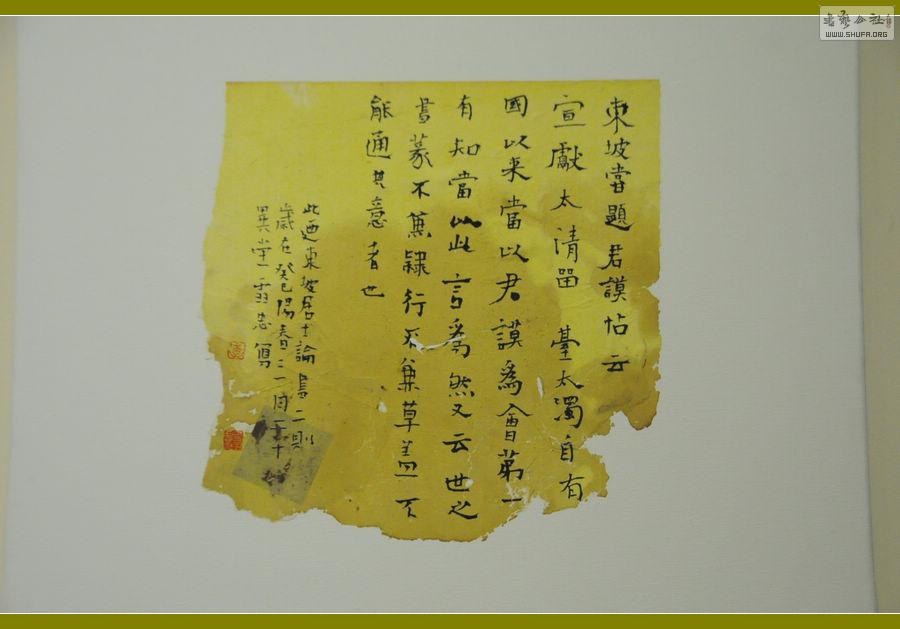 東坡嘗題君謨帖云
宣獻太清留臺太濁自有
國以来當以君謨爲會第一
有知當以此言爲然又云世之
書篆不兼隸行不兼草盖不
能通其意者也
此迺東坡居士論書二則
歲在癸巳陽春二月二十
堂忠寫
書藝公社
WWW.SHUFA.ORG